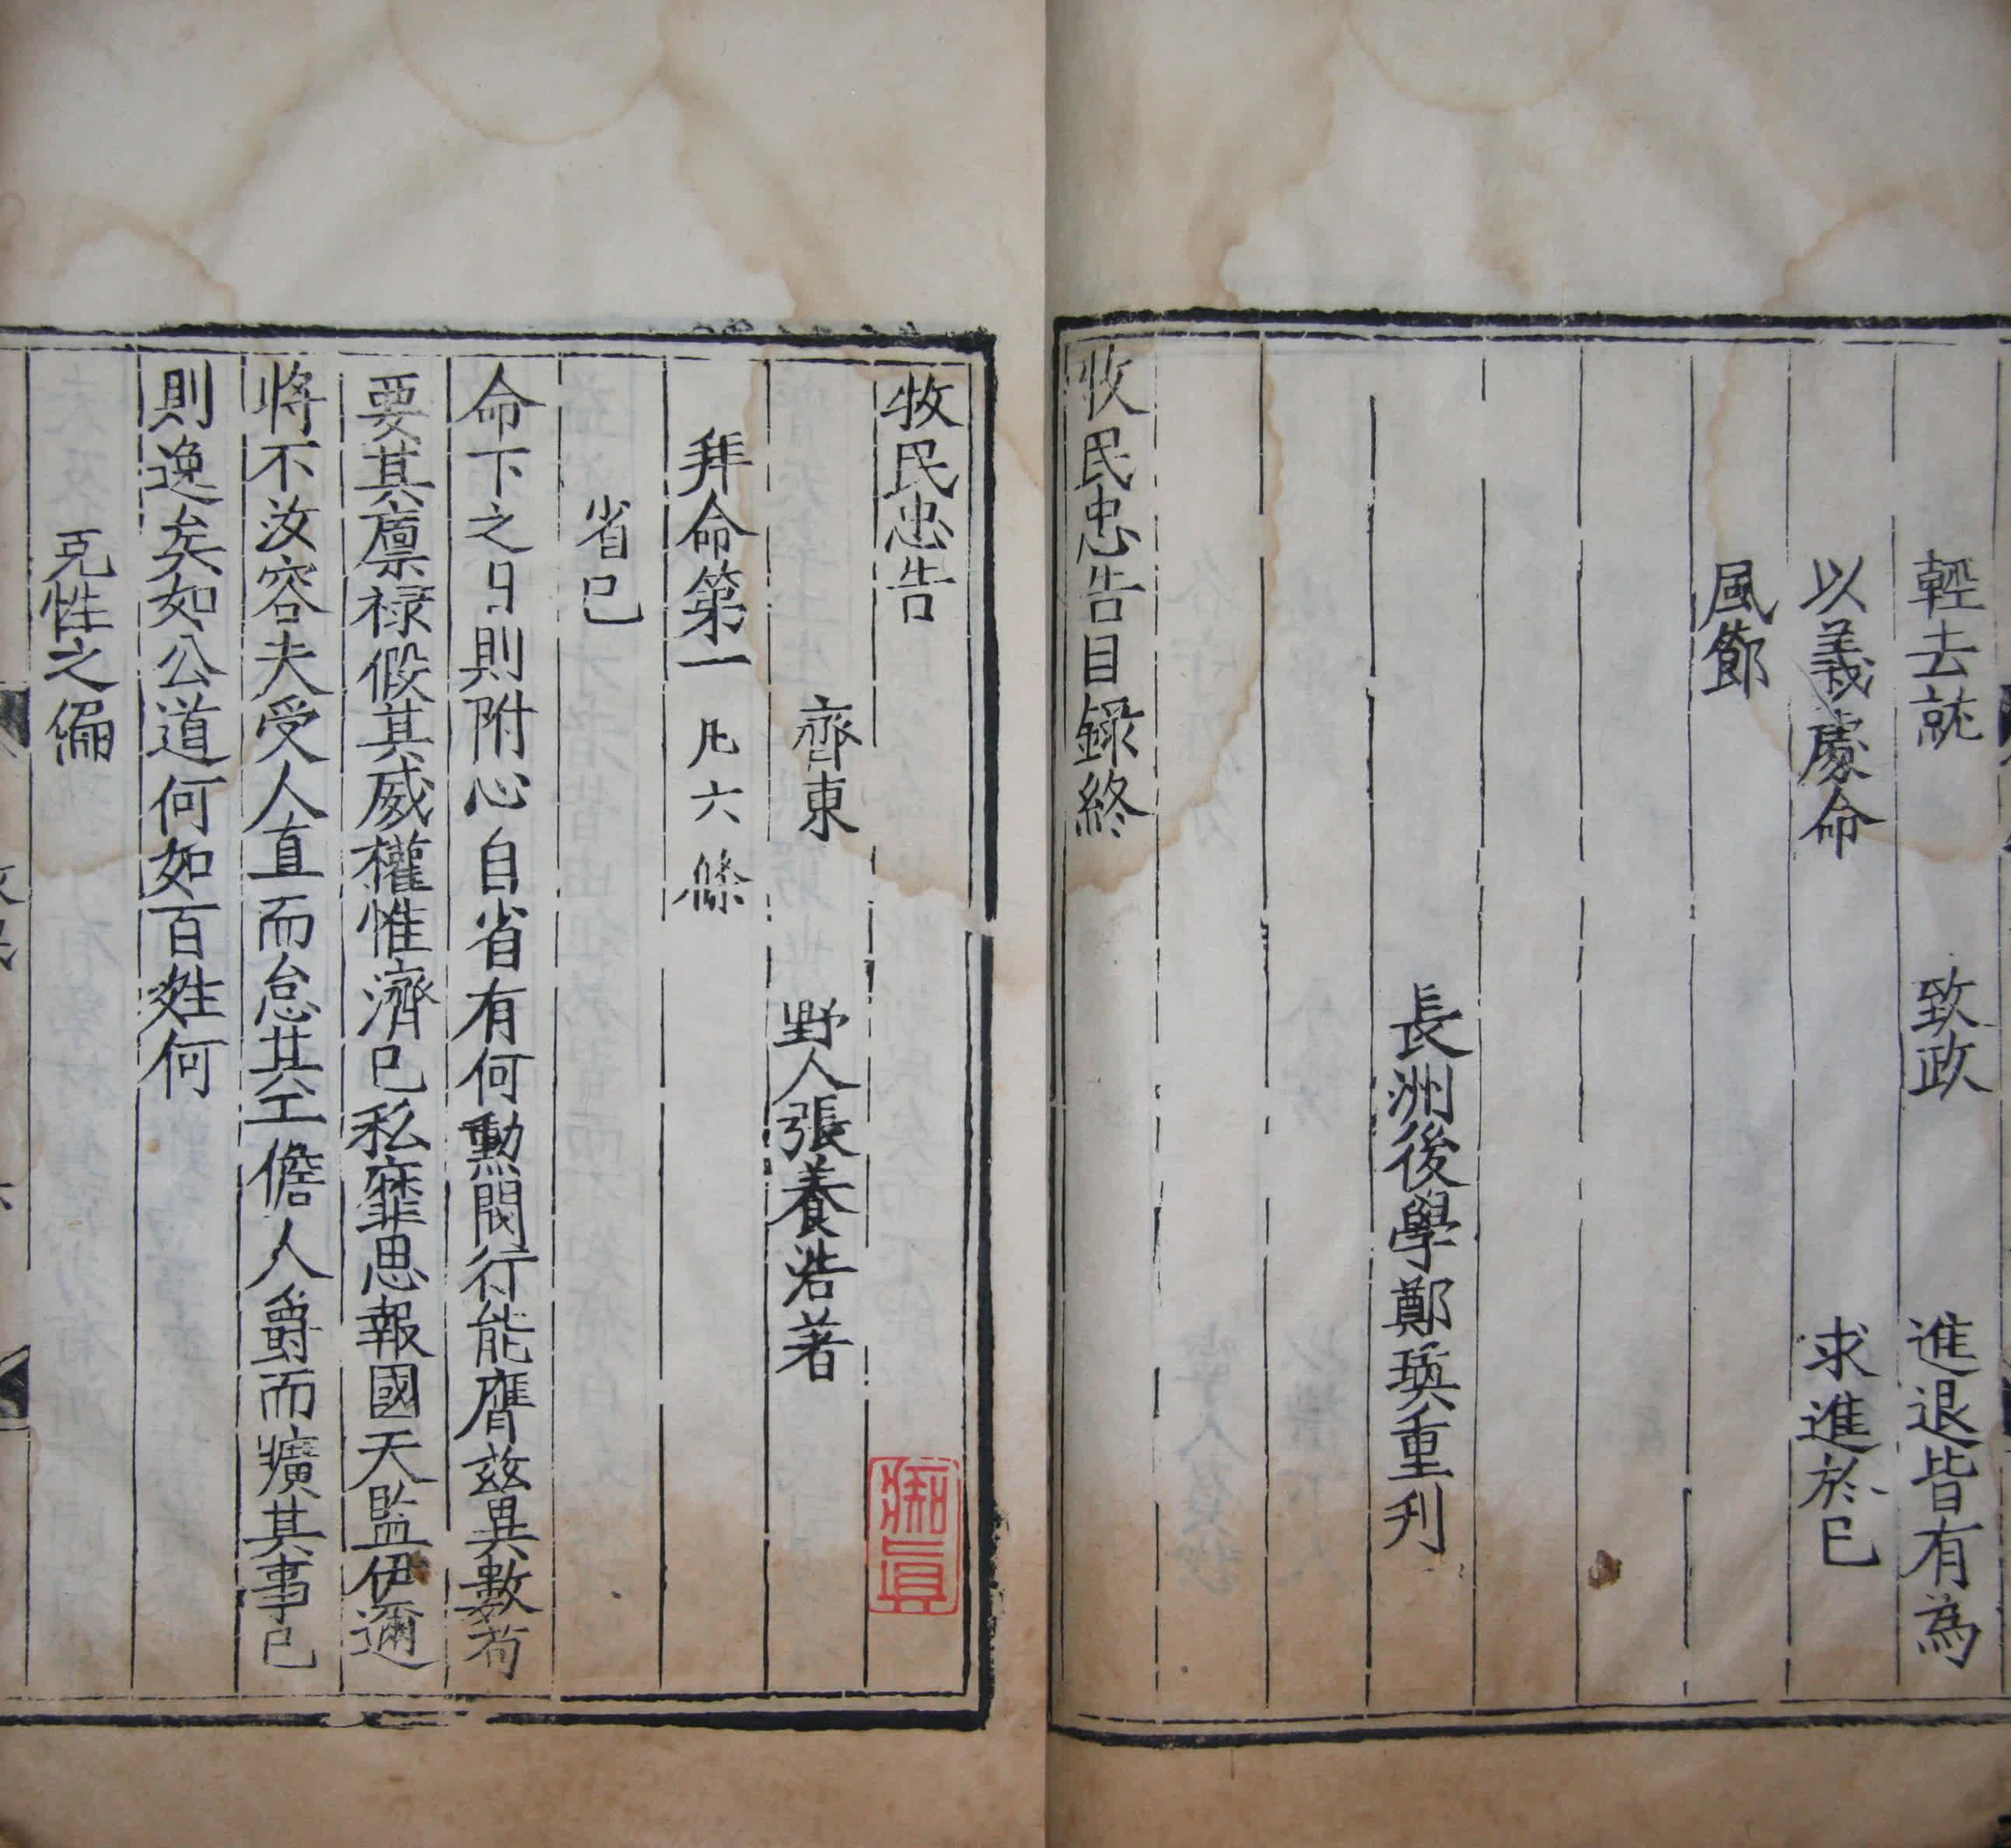 輕去就 致政 進退皆有為
以義處命 求進於已
風節
長洲後學鄭瑛重刋
牧民忠告目錄終
牧民忠告
齊東 野人張養浩著
拜命第一 凡六條
省已
命下之日則附心自省有何勳閥行能膺茲異數苟
要其廩祿假其威權惟濟已私靡思報國天監伊邇
將不汝容夫受人直而怠其工儋人爵而癏其事已
則逸矣如公道何如百姓何
克性之偏